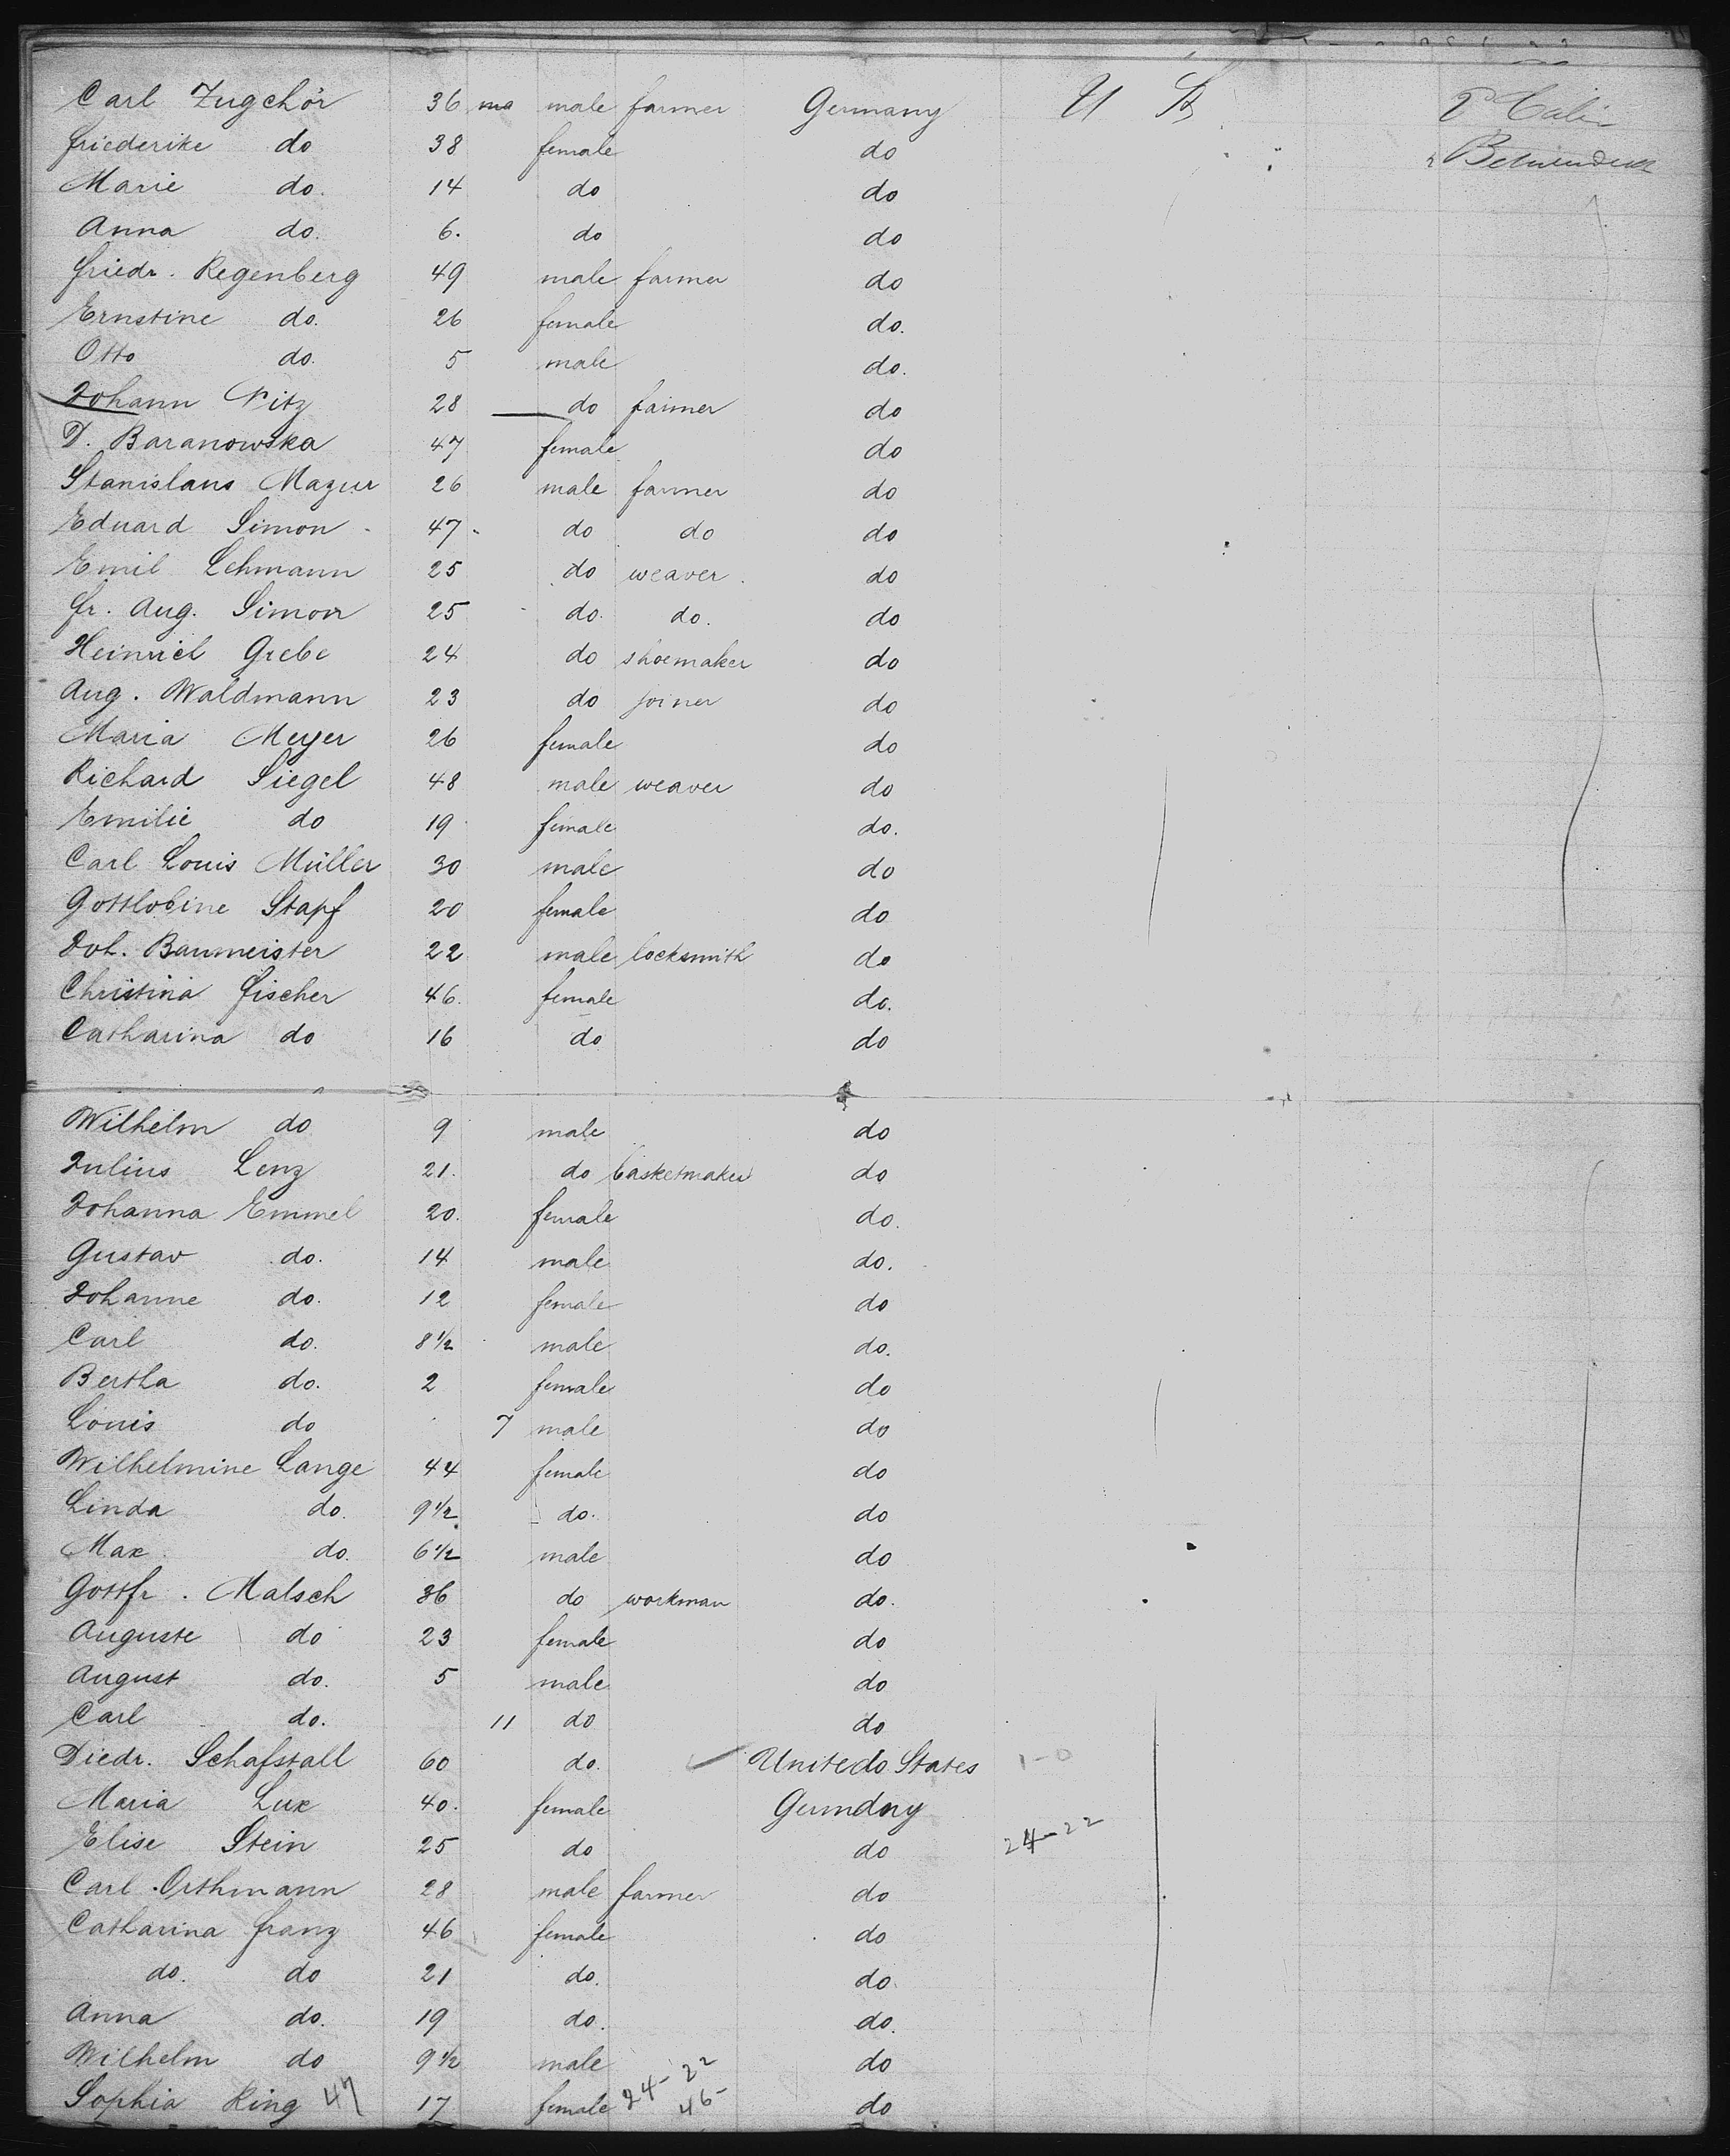 Carl Zugehör 36 ma male farmer Germany U St
Friederike do 38 female do
Marie do. 14 do do
Anna do. 6. do do
Friedr. Regenberg 49 male farmer do
Ernstine do. 26 female do.
Otto do. 5 male do.
Johann Pitz 28 do farmer do
D. Baranowska 47 female do
Stanislaus Mazur 26 male farmer do
Eduard Simon 47 do do do
Emil Lehmann 25 do weaver do
Fr. Aug. Simon 25 do. do. do
Heinrich Grebe 24 do shoemaker do
Aug. Waldmann 23 do joiner do
Maria Meyer 26 female do
Richard Siegel 48 male weaver do
Emilie do 19 female do.
Carl Louis Müller 30 male do
Gottlobine Stapf 20 female do
Joh. Baumeister 22 male locksmith do
Christina Fischer 46. female do.
Catharina do 16 do do
Wilhelm do 9 male do
Julius Lenz 21. do basketmaker do
Johanna Emmel 20. female do.
Gustav do. 14 male do.
Johanne do. 12 female do
Carl do. 8 1/2 male do.
Bertha do. 2 female do
Louis do 7 male do
Wilhelmine Lange 44 female do
Linda do. 9 1/2 do. do
Max do. 6 1/2 male do
Gottfr. Malsch 36 do workman do.
Auguste do 23 female do
August do. 5 male do
Carl do. 11 do do
Diedr. Schafstall 60 do. United States 1-0
Maria Lux 40. female Germany
Elise Stein 25 do do 24-22
Carl Orthmann 28 male farmer do
Catharina Franz 46 female do
do. do 21 do. do.
Anna do. 19 do. do.
Wilhelm do 9 1/2 male do
Sophia King 47 17 female 24-22 46- do